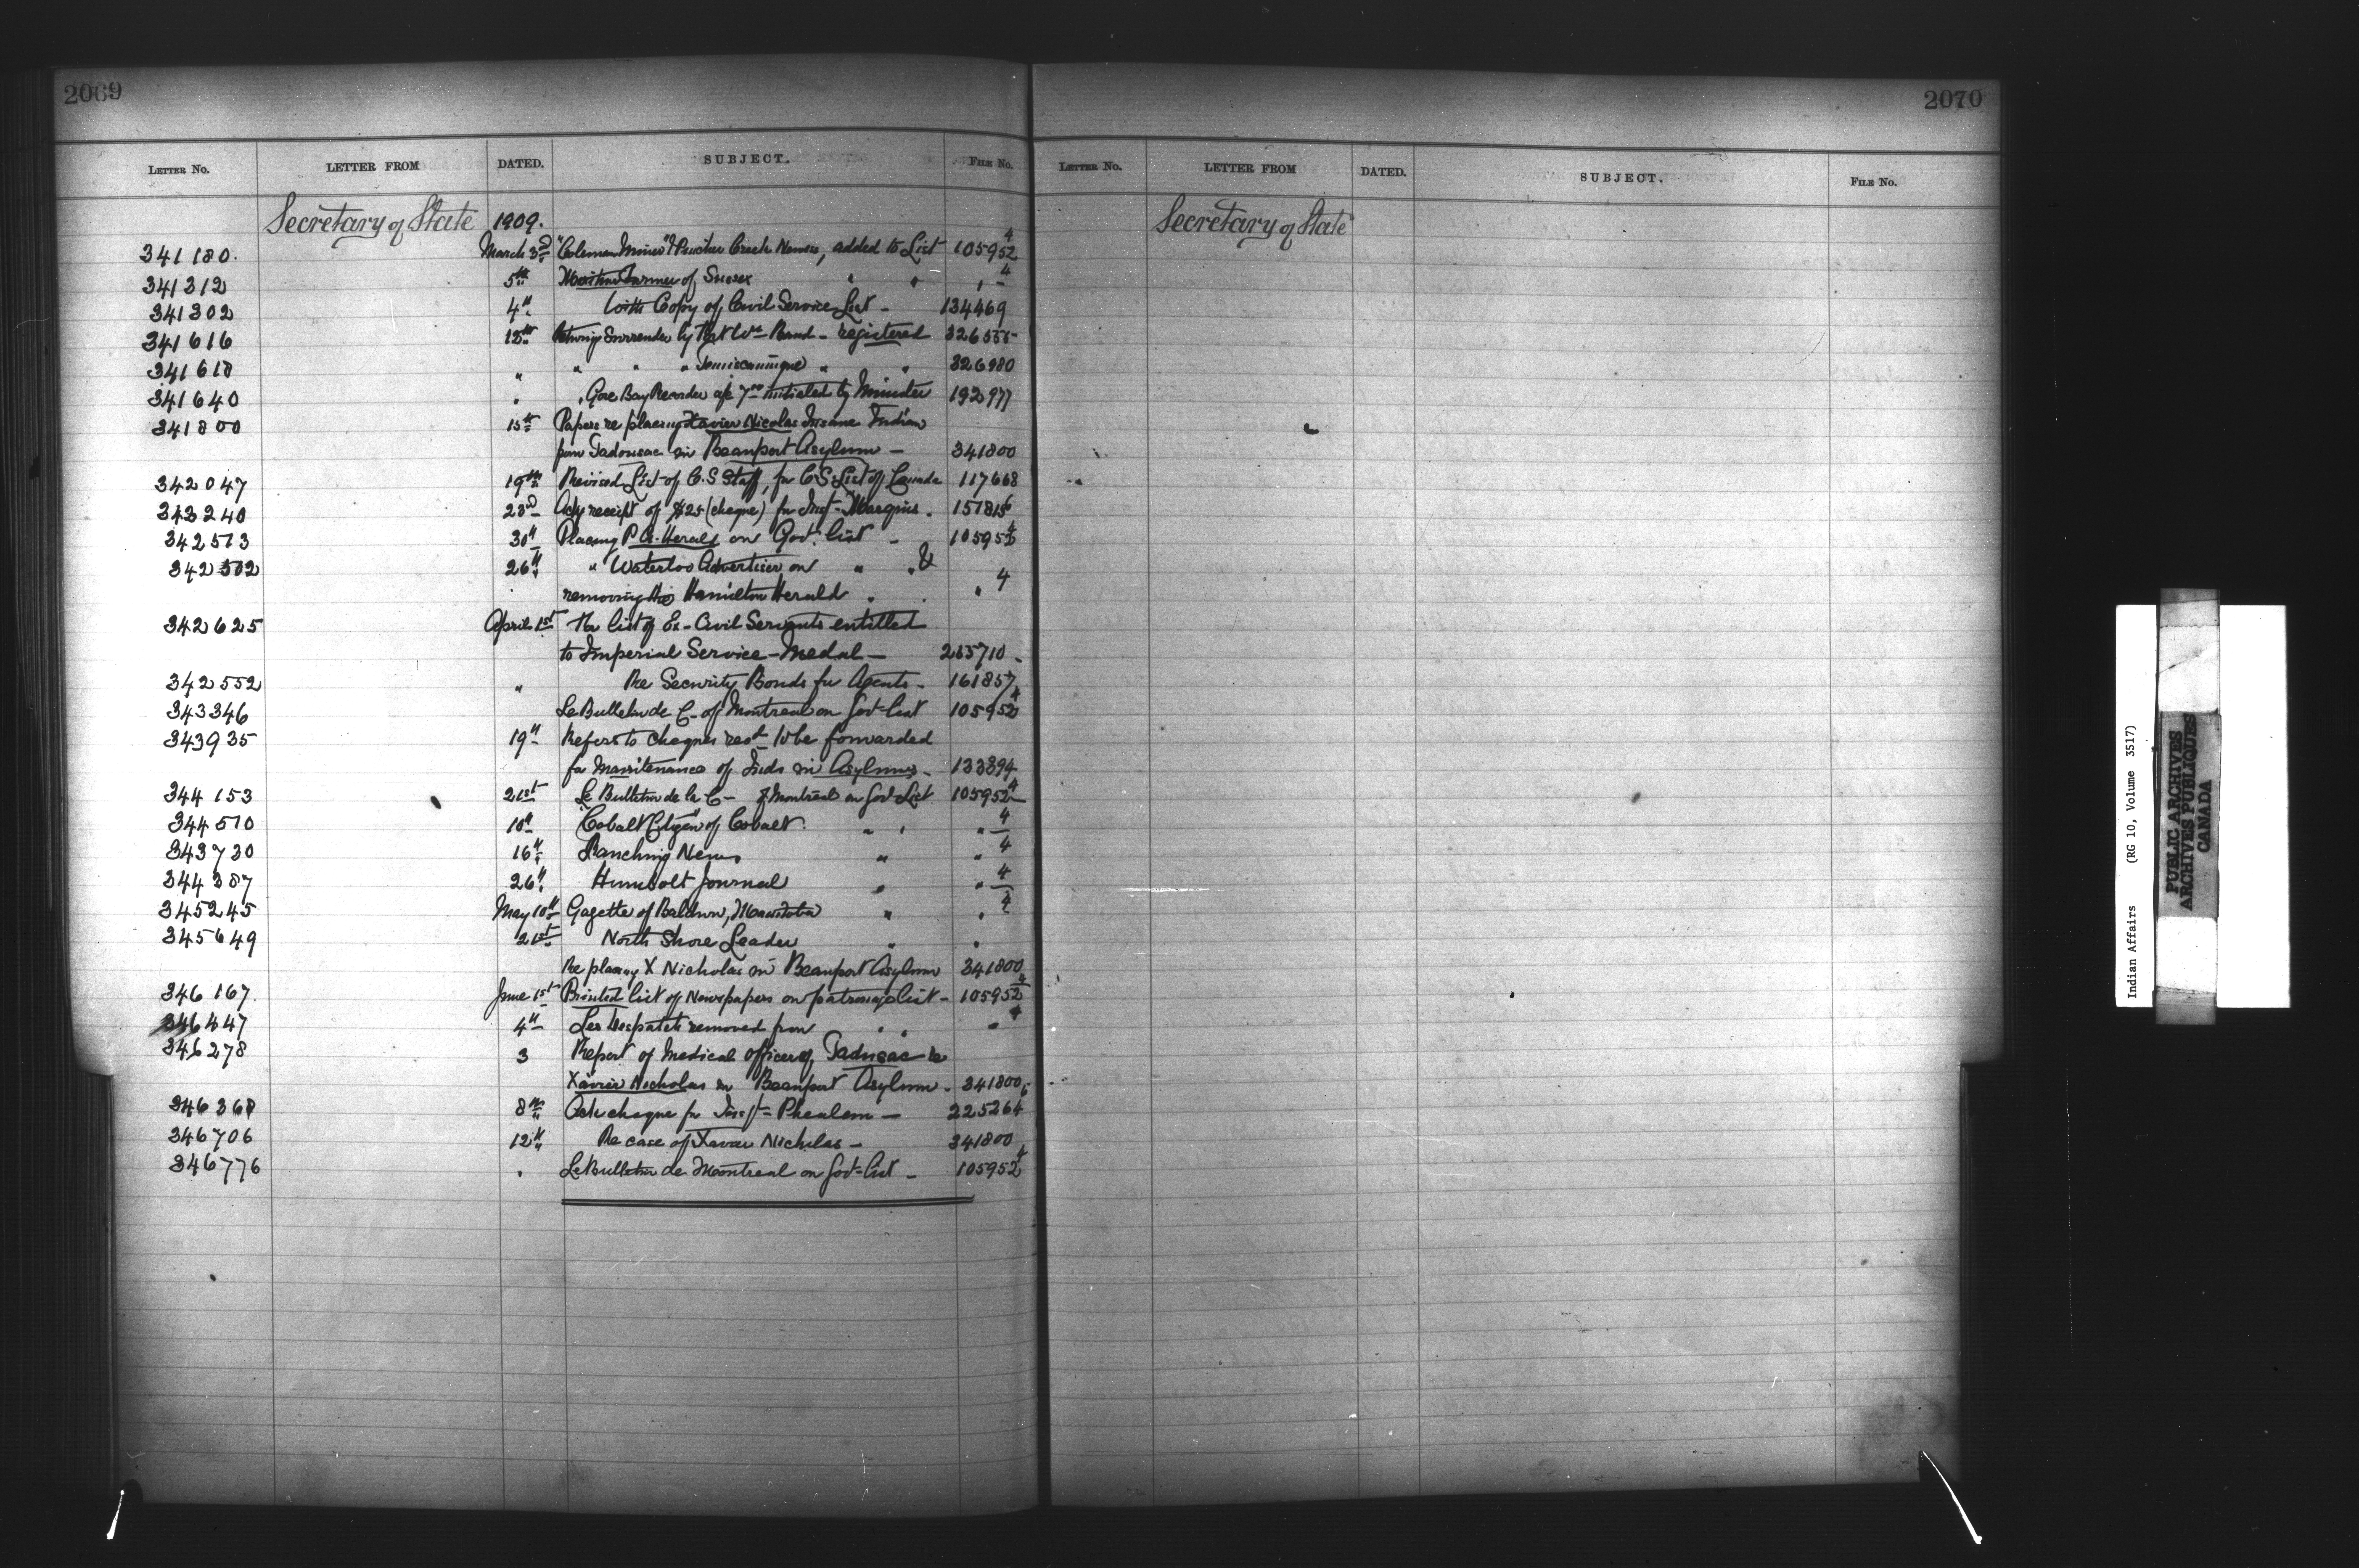 2069
LETTER NO. LETTER FROM DATED. SUBJECT. FILE NO.
Secretary of State 1909.
341180. March 3rd "Coleman Miner" & Pincher Creek News, added to List 105952 4
341312 5th Maritime Farmer of Sussex " " " 4
341302 4th With Copy of Civil Service List - 134469
341616 12th Surrender by Band - registered
341618 " " " " Temiscamingue " " 326980
341640 " " Gore Bay Recorder a/c initialed by Minister 192977
341800 15th Papers re placing Xavier Nicolas Insane Indian
from Tadousac in Beauport Asylum - 341800
342047 19th Revised List of C.S Staff, for C S. List of Canada 117668
343240 23d Ackg receipt of $25 (cheque) for Marquis.
342573 30th Placing P A. Herald on Govt. list - 105952 4
342502 26th " Waterloo Advertiser on " " &
removing the Hamilton Herald " . " 4
342625 April 1st Re list of Ex-Civil Servants entitled
to Imperial Service - Medal -
342552 " Re Security Bonds for Agents -
343346 Le Bulletin de C- of Montreal on Govt-list 105952 4
343935 19th Refers to cheques to be forwarded
for Maintenance of Inds in Asylums - 133394
344153 21st Le Bulletin de la C- of Montreal on Govt-List 105952 4
344510 10th "Cobalt Citizen" of Cobalt. " " " 4
343730 16th Ranching News " " 4
344387 26th Humbolt Journal " " 4
345245 May 10th Gazette of Baldur, Manitoba " " 4
345649 21st North Shore Leader " "
Re placing X Nicholas in Beauport Asylum 341800
346167. June 1st Printed list of Newspapers on patronage list - 105952 4
346447 4th Despatch removed from " " " 4
346278 3 Report of Medical officer of Tadusac re
Xavier Nicholas in Beauport Asylum - 341800
346368 8th Ack cheque for Phealem - 225264
346706 12th Re case of Xavier Nicholas - 341800
346776 " Le Bulletin de Montreal on Govt-list - 105952 4
2070
LETTER NO. LETTER FROM DATED. SUBJECT. FILE NO.
Secretary of State
Indian Affairs (RG 10, Volume 3517)
PUBLIC ARCHIVES
ARCHIVES PUBLIQUES
CANADA